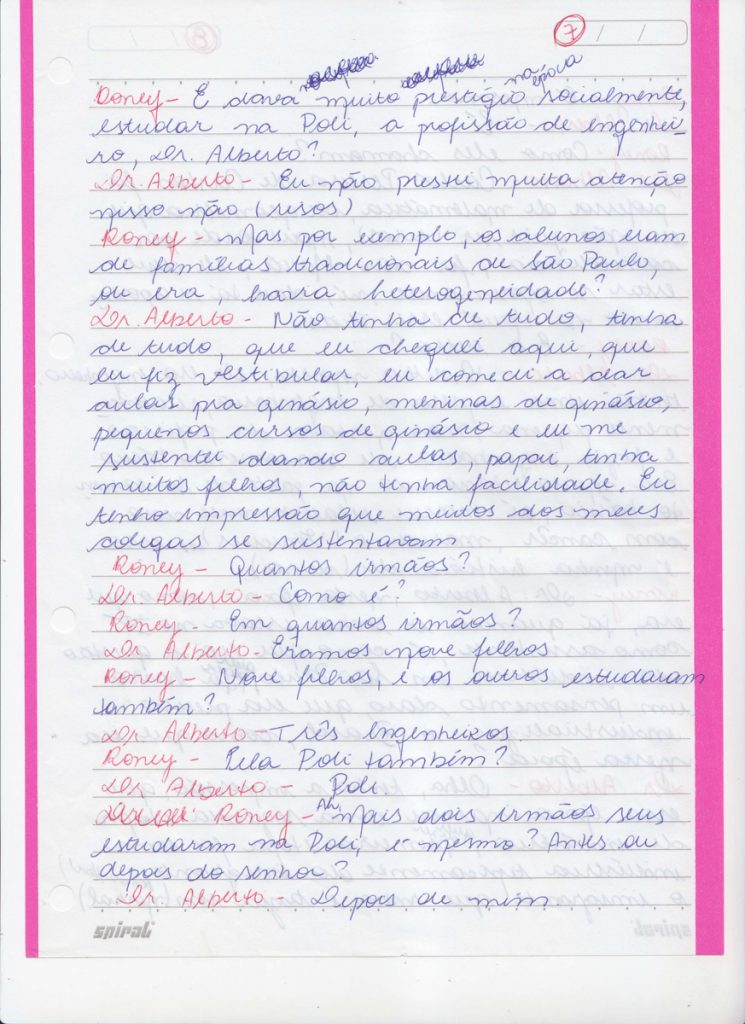 7
na época
Roney - E dava muito prestígio socialmente,
estudar na Poli, a profissão de engenhei-
ro, Dr. Alberto?
Dr. Alberto - Eu não prestei muita atenção
nisso não (risos)
Roney - Mas por exemplo, os alunos eram
de famílias tradicionais de São Paulo,
ou era, havia heterogeneidade?
Dr. Alberto - Não tinha de tudo, tinha
de tudo, que eu cheguei aqui, que
eu fiz vestibular, eu comecei a dar
aulas pra ginásio, meninas de ginásio,
pequenos cursos de ginásio e eu me
sustentei dando aulas, papai, tinha
muitos filhos, não tinha facilidade. Eu
tenho impressão que muitos dos meus
colegas se sustentavam
Roney - Quantos irmãos?
Dr. Alberto - Como é?
Roney - Em quantos irmãos?
Dr. Alberto - Eramos nove filhos
Roney - Nove filhos, e os outros estudaram
também?
Dr. Alberto - Três Engenheiros.
Roney - Pela Poli também?
Dr. Alberto - Poli
Roney - Ah, Mais dois irmãos seus
estudaram na Poli, é mesmo? Antes ou
depois do senhor?
Dr. Alberto - Depois de mim
spiral